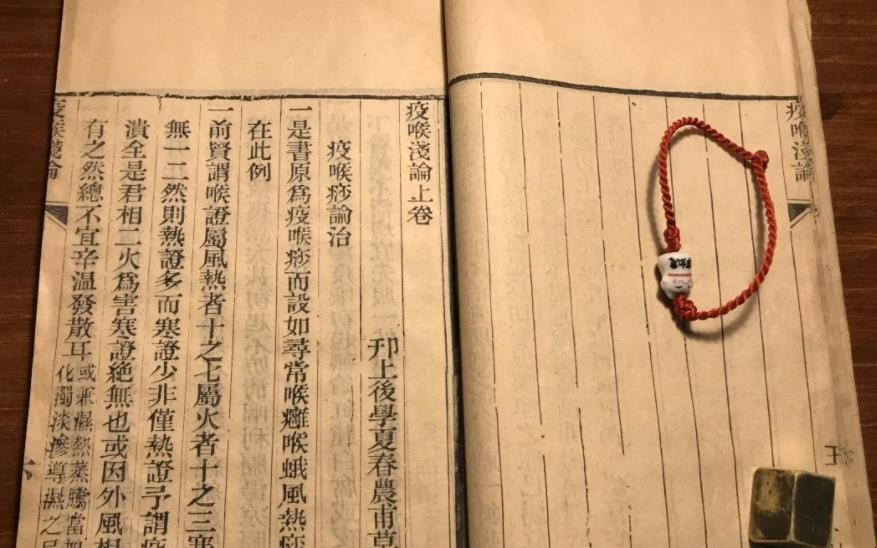 疫喉淺論
疫喉淺論上卷
疫喉痧論治
邗上後學夏春農甫
一是書原爲疫喉痧而設如尋常喉癰喉蛾風熱痧
在此例
一前賢謂喉證屬風熱者十之七屬火者十之三寒
無一二然則熱證多而寒證少非僅熱證予謂疫
潰全是君相二火爲害寒證絶無也或因外風相
有之然總不宜辛溫發散耳
或兼濕熱蒸騰當
化濁淡滲導濕之
疫喉淺論